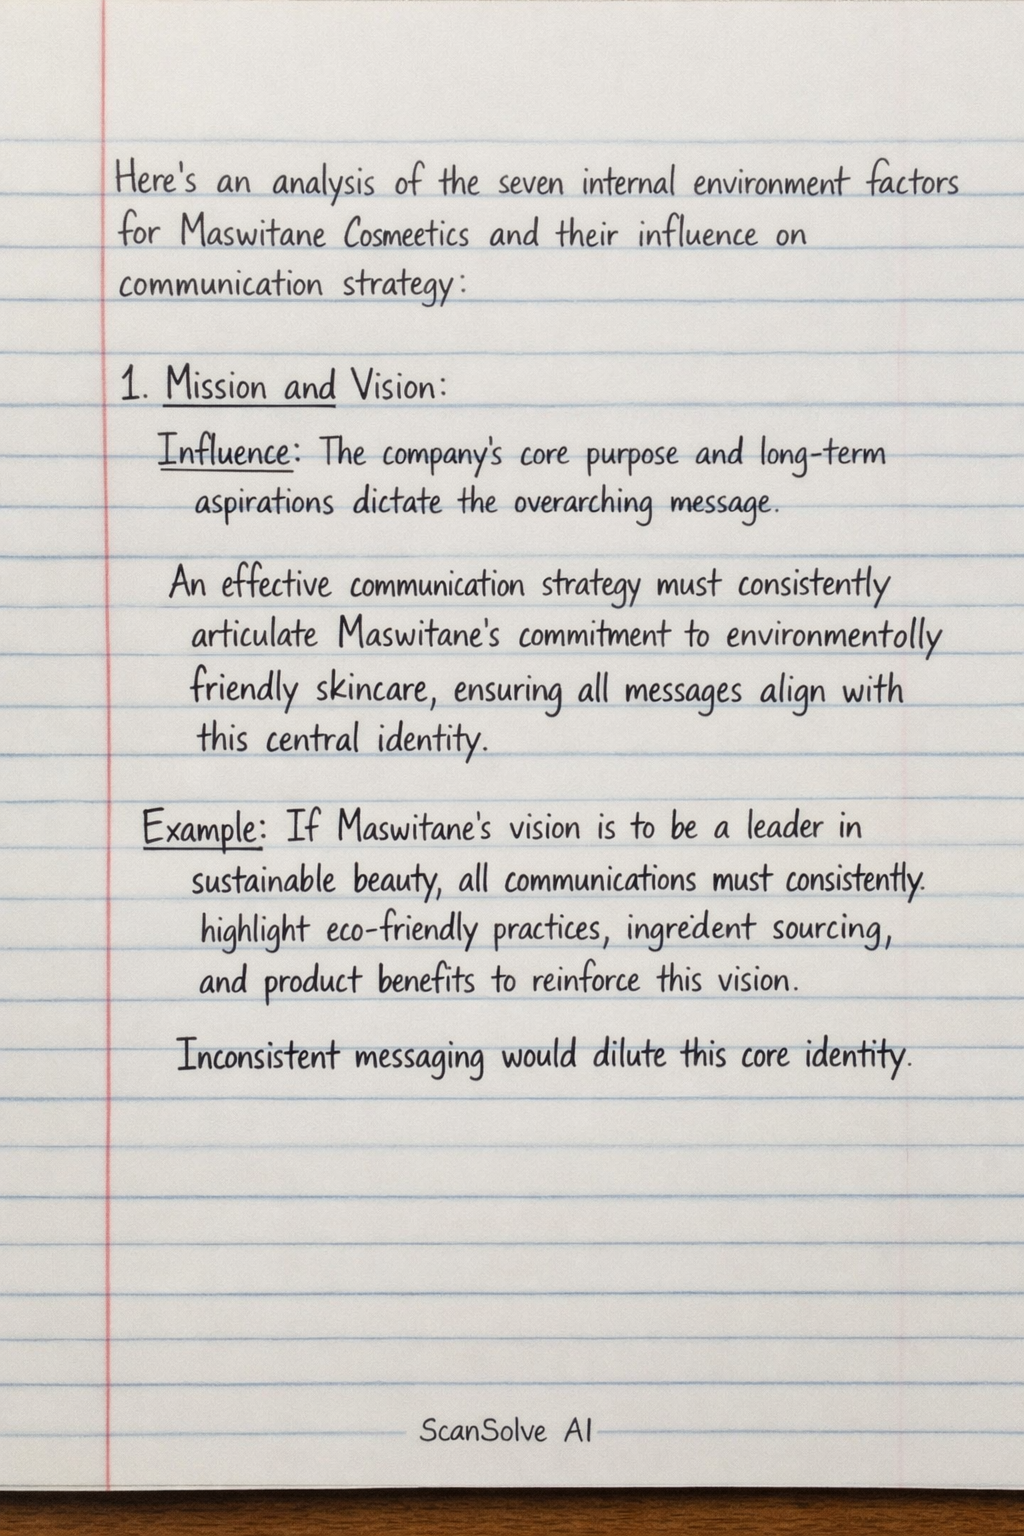 Here's an analysis of the seven internal environment factors
for Maswitane Cosmeetics and their influence on
communication strategy:
1. Mission and Vision:
Influence: The company's core purpose and long-term
aspirations dictate the overarching message.
An effective communication strategy must consistently
articulate Maswitane's commitment to environmentolly
friendly skincare, ensuring all messages align with
this central identity.
Example: If Maswitane's vision is to be a leader in
sustainable beauty, all communications must consistently.
highlight eco-friendly practices, ingredent sourcing,
and product benefits to reinforce this vision.
Inconsistent messaging would dilute this core identity.
ScanSolve AI